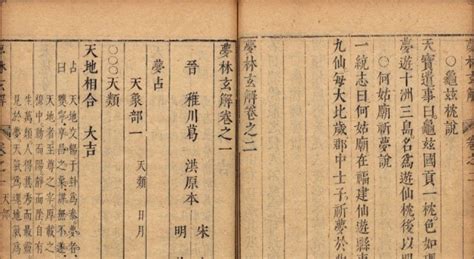 ○龜玆枕說
天寶遺事曰龜玆國貢一枕色如
夢遊十洲三島名爲遊仙枕後以
○何姑廟祈夢說
一統志曰何姑廟在福建仙遊縣東
九仙每大比歲郡中士子祈夢於
夢林玄解卷之二
夢林玄解卷之一
晉 稚川葛 洪原本
宋
明
夢占
天象部一 天類 日月
○○○天類
天地相合 大吉
占曰
天地交暢于卦爲泰夢者
天地者至尊之宰厚載之